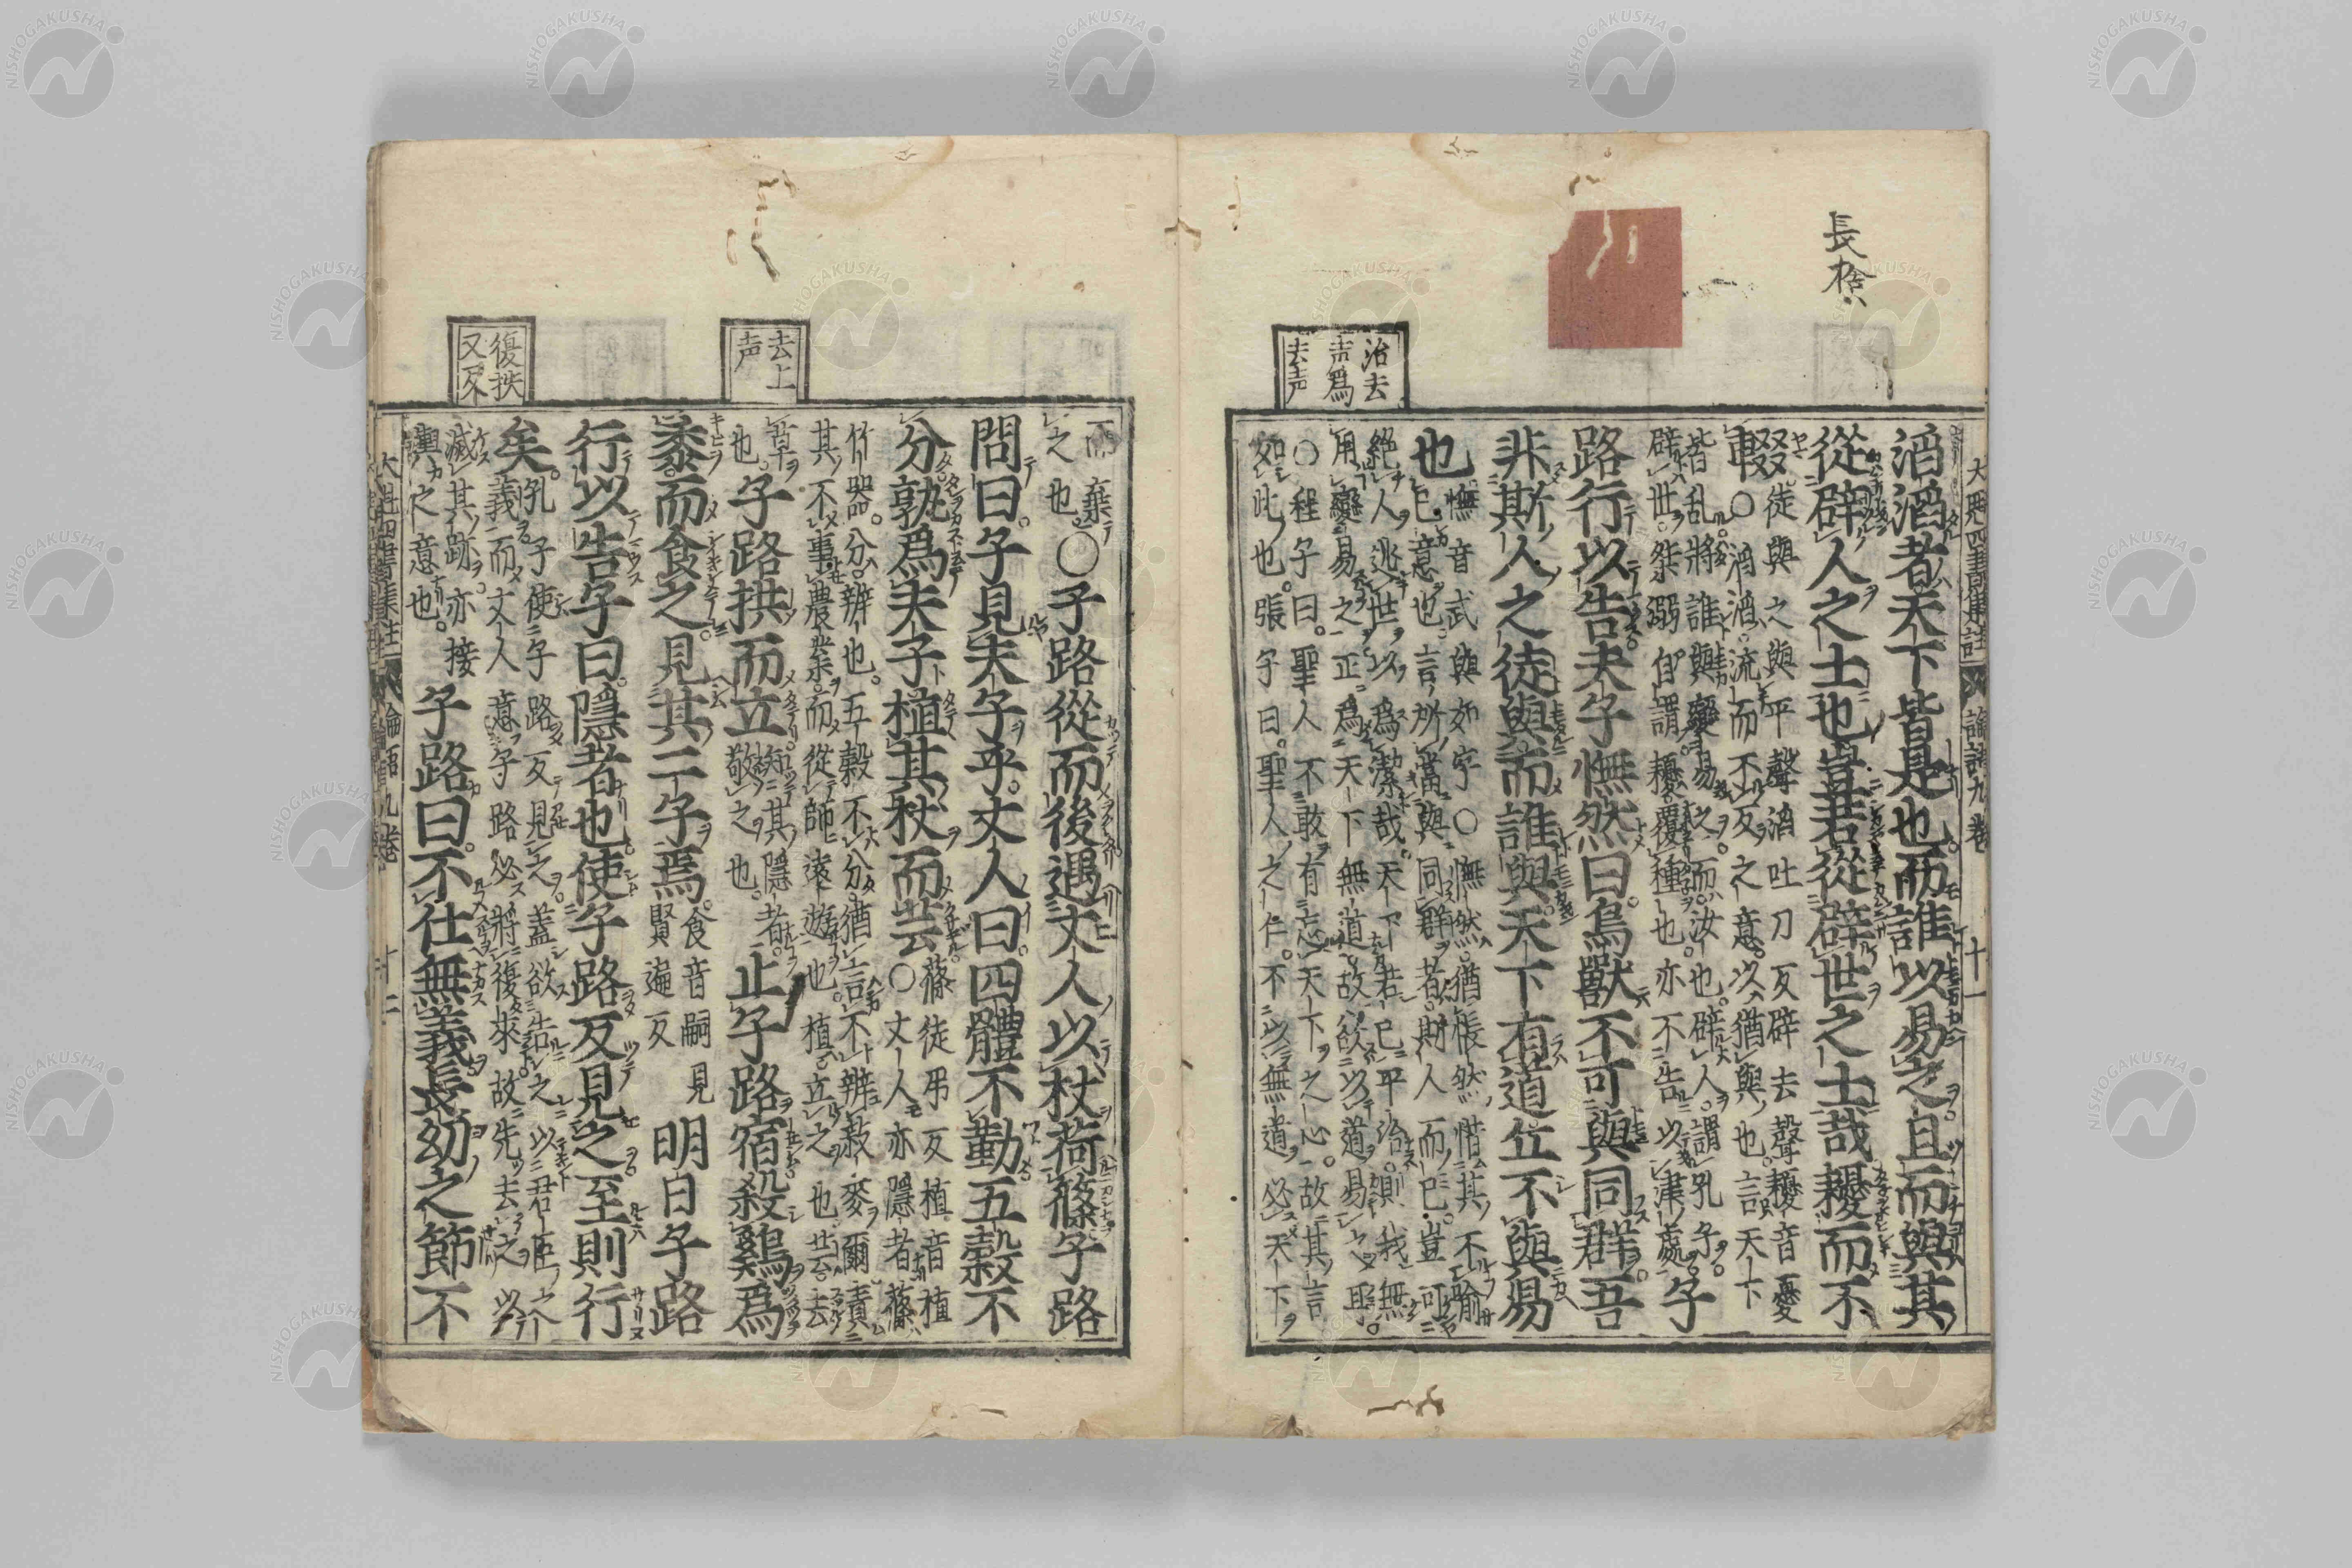 長捨ハ
治去
声爲
去声
大魁四書集註 論語九卷 十一
滔滔者天下皆是也而誰以易之且而與其
從辟人之士也豈若從辟世之士哉耰而不
輟
徒與之與平聲滔吐刀反辟去聲耰音憂
○滔滔流而不反之意以猶與也言天下
皆乱將誰與變易之而汝也辟人謂孔子
辟世桀溺自謂耰覆種也亦不告以津處
子
路行以告夫子憮然曰鳥獸不可與同群吾
非斯人之徒與而誰與天下有道丘不與易
也
憮音武與如字○憮然猶悵然惜其不喻
已意也言所當與同群者斯人而已豈可
絶人逃世以爲潔哉天下若已平治則我無
用變易之正爲天下無道故欲以道易之耳
○程子曰聖人不敢有忘天下之心故其言
如此也張子曰聖人之仁不以無道必天下
去上
声
復扶
又反
而棄
之也
○子路從而後遇丈人以杖荷蓧子路
問曰子見夫子乎丈人曰四體不勤五穀不
分孰爲夫子植其杖而芸
蓧徒弔反植音植
○丈人亦隱者蓧
竹器分辨也五穀不分猶言不辨菽麥爾責
其不事農業而從師遠遊也植立之也芸去
草
也
子路拱而立
知其隱者
敬之也
止子路宿殺鷄爲
黍而食之見其二子焉
食音嗣見
賢遍反
明日子路
行以告子曰隱者也使子路反見之至則行
矣
孔子使子路反見之蓋欲告之以君臣之
義而丈人意子路必將復來故先去之以
滅其跡亦接
輿之意也
子路曰不仕無義長幼之節不
大魁四書集註 論語九卷 十二